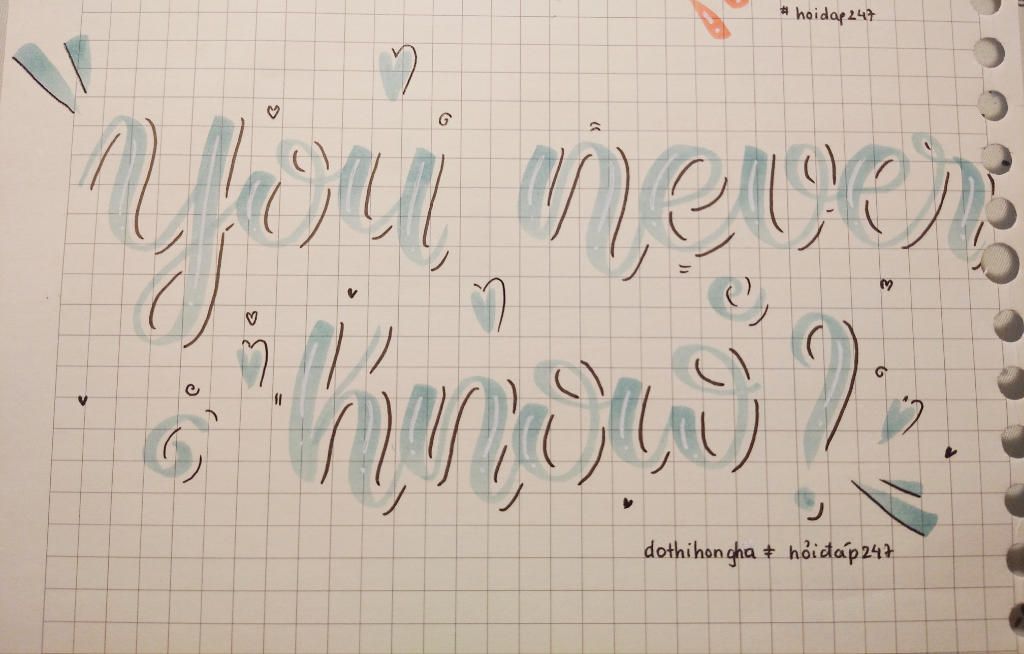 # hoidap247
you never
know?
dothihongha # hỏiđáp247